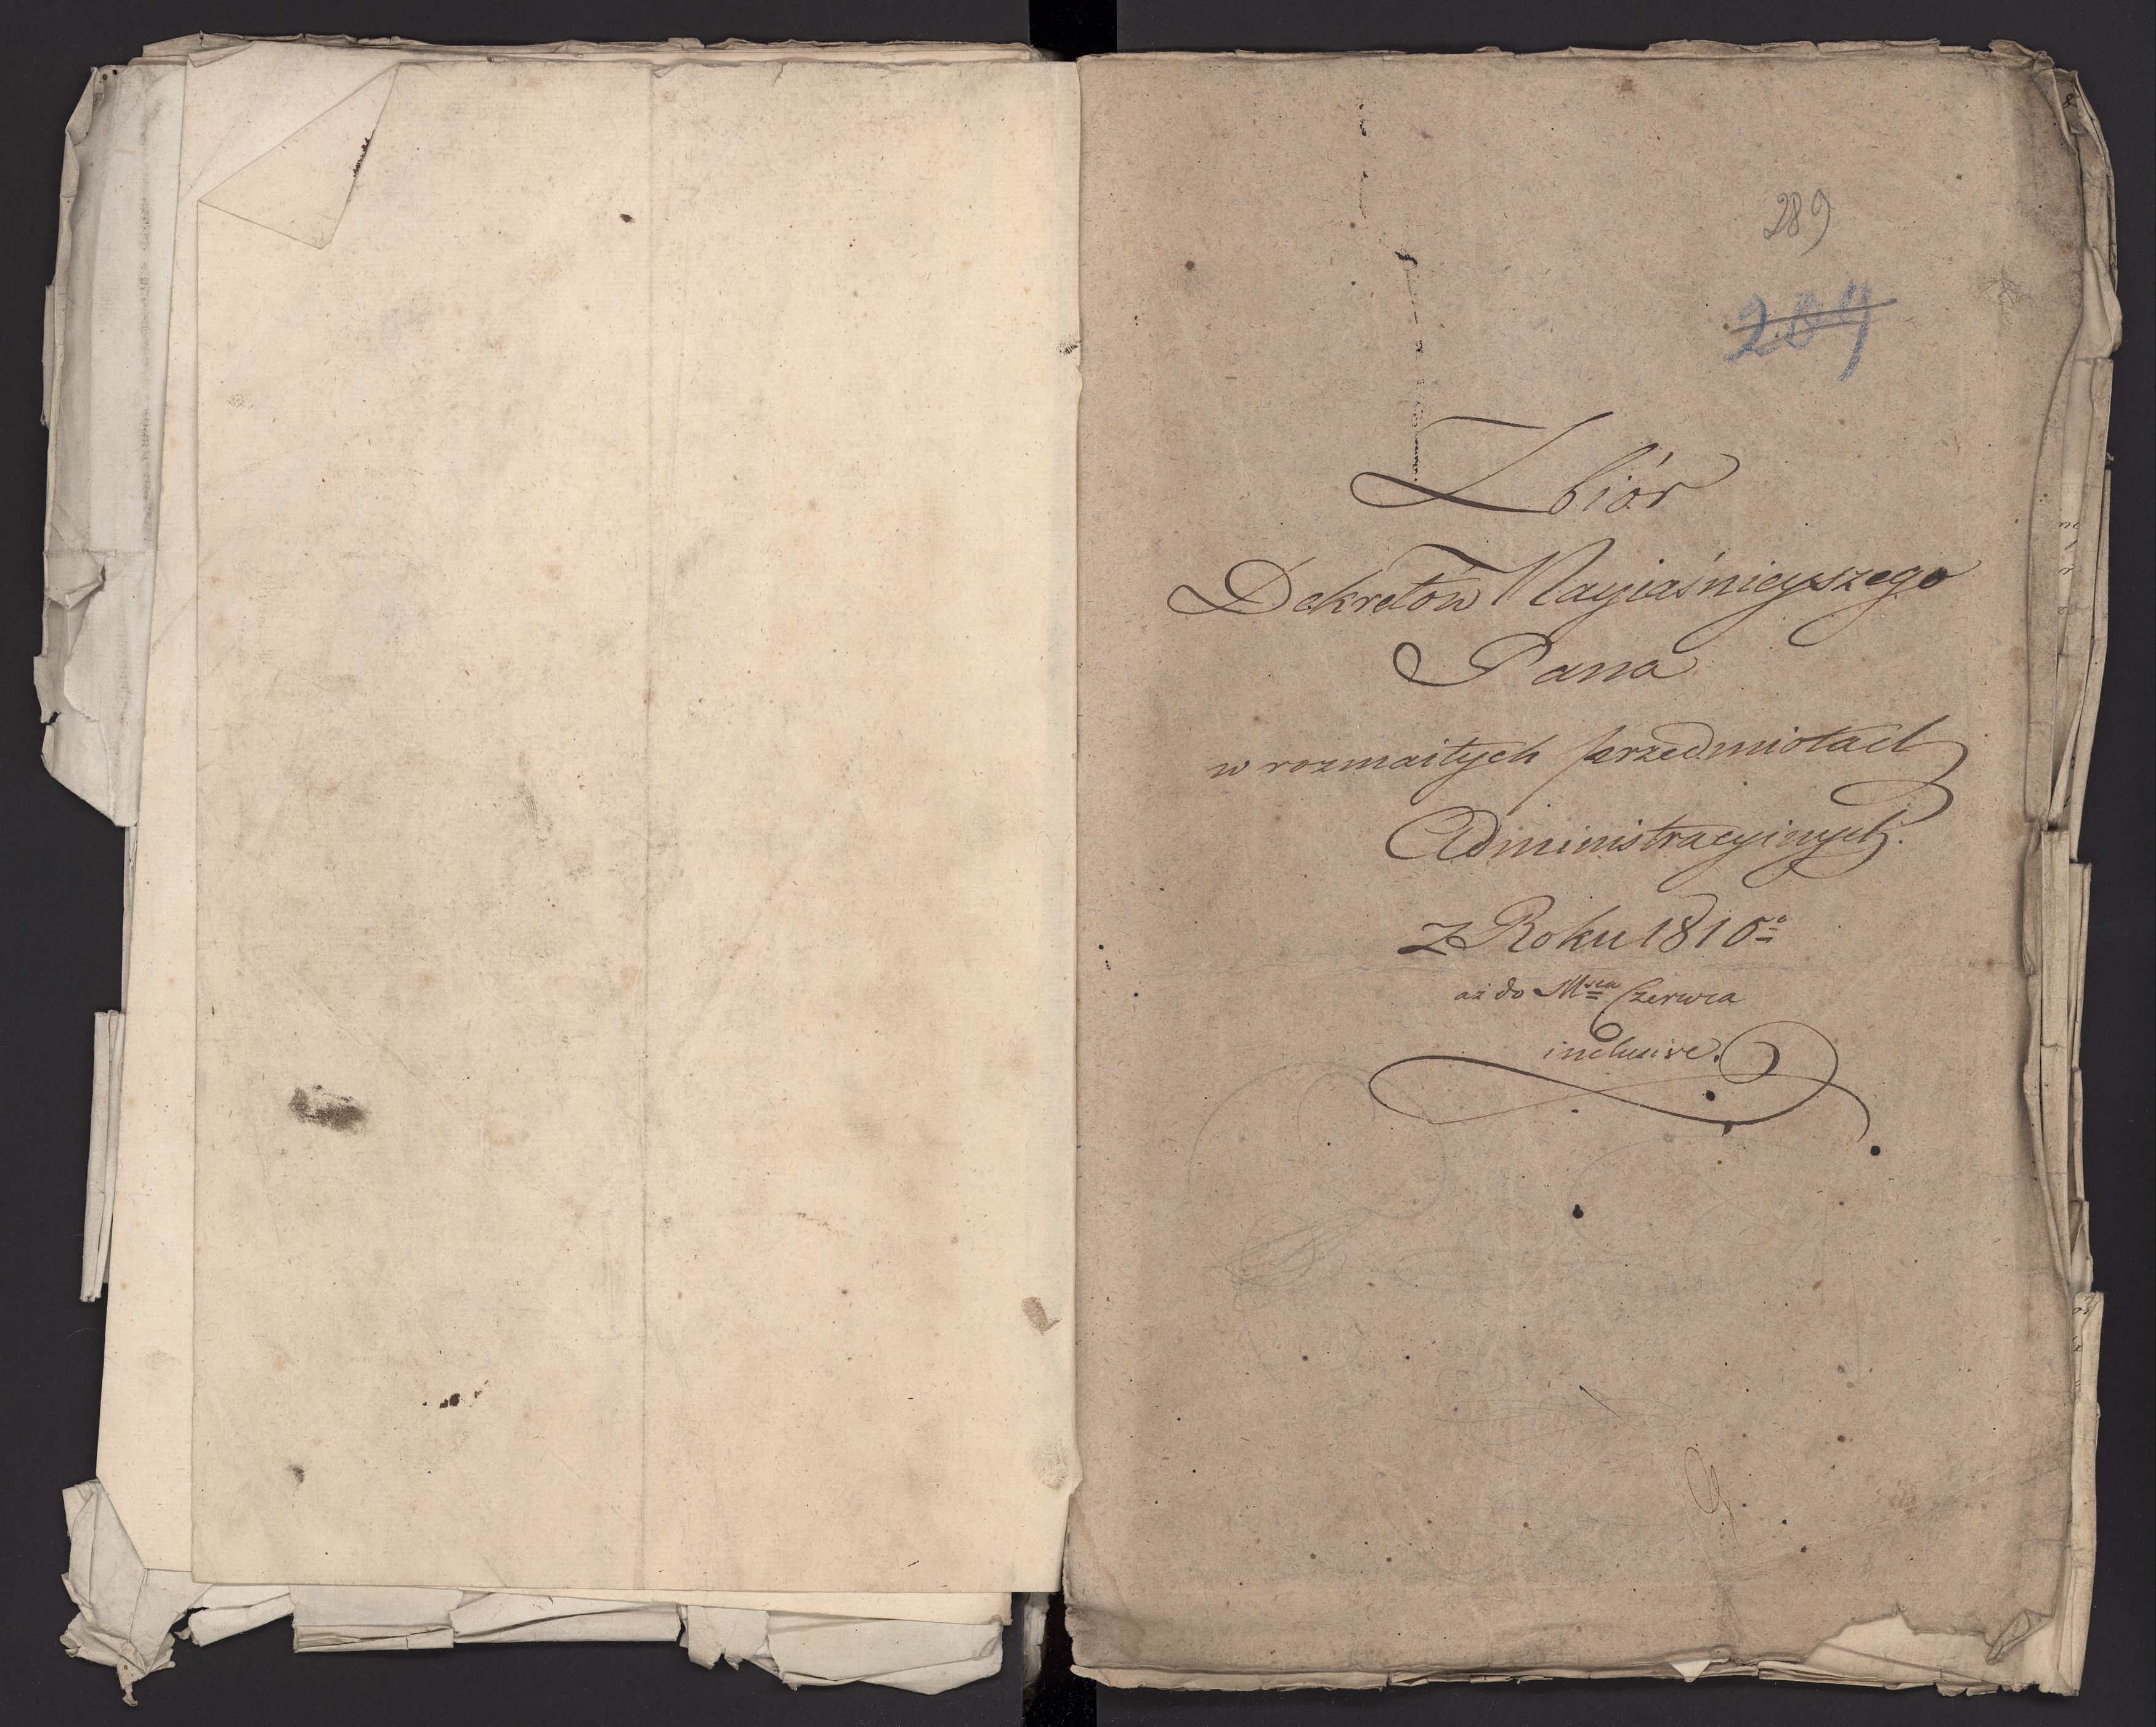 289
Zbiór
Dekretów Nayiaśnieyszego
Pana
w rozmaitych przedmiotach
Administracyinych.
z Roku 1810º
aż do Msca Czerwca
inclusive.